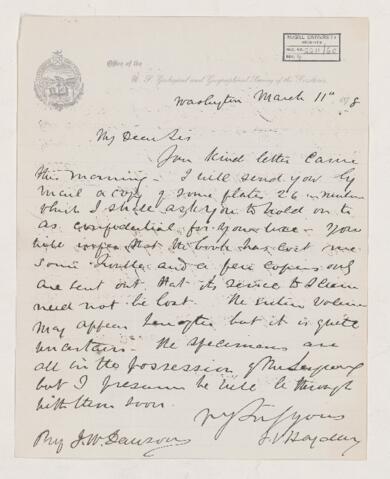 McGILL UNIVERSITY
ARCHIVES
ACC. NO.
REF.
Office of the
U. S. Geological and Geographical Survey of the Territories,
Washington March 11th 1878
My Dear Sir
Your kind letter came
this morning. I will send you by
mail a copy of some plates 26 in number
which I shall ask you to hold on to
as confidential for your use. You
that the book has cost me
some trouble and a few copies only
are sent out that its to Science
need not be lost. The entire volume
may appear but it is quite
uncertain. The specimens are
all in the possession of
but I presume he will be through
with them soon.
Very truly yours
F V Hayden
J. W. Dawson